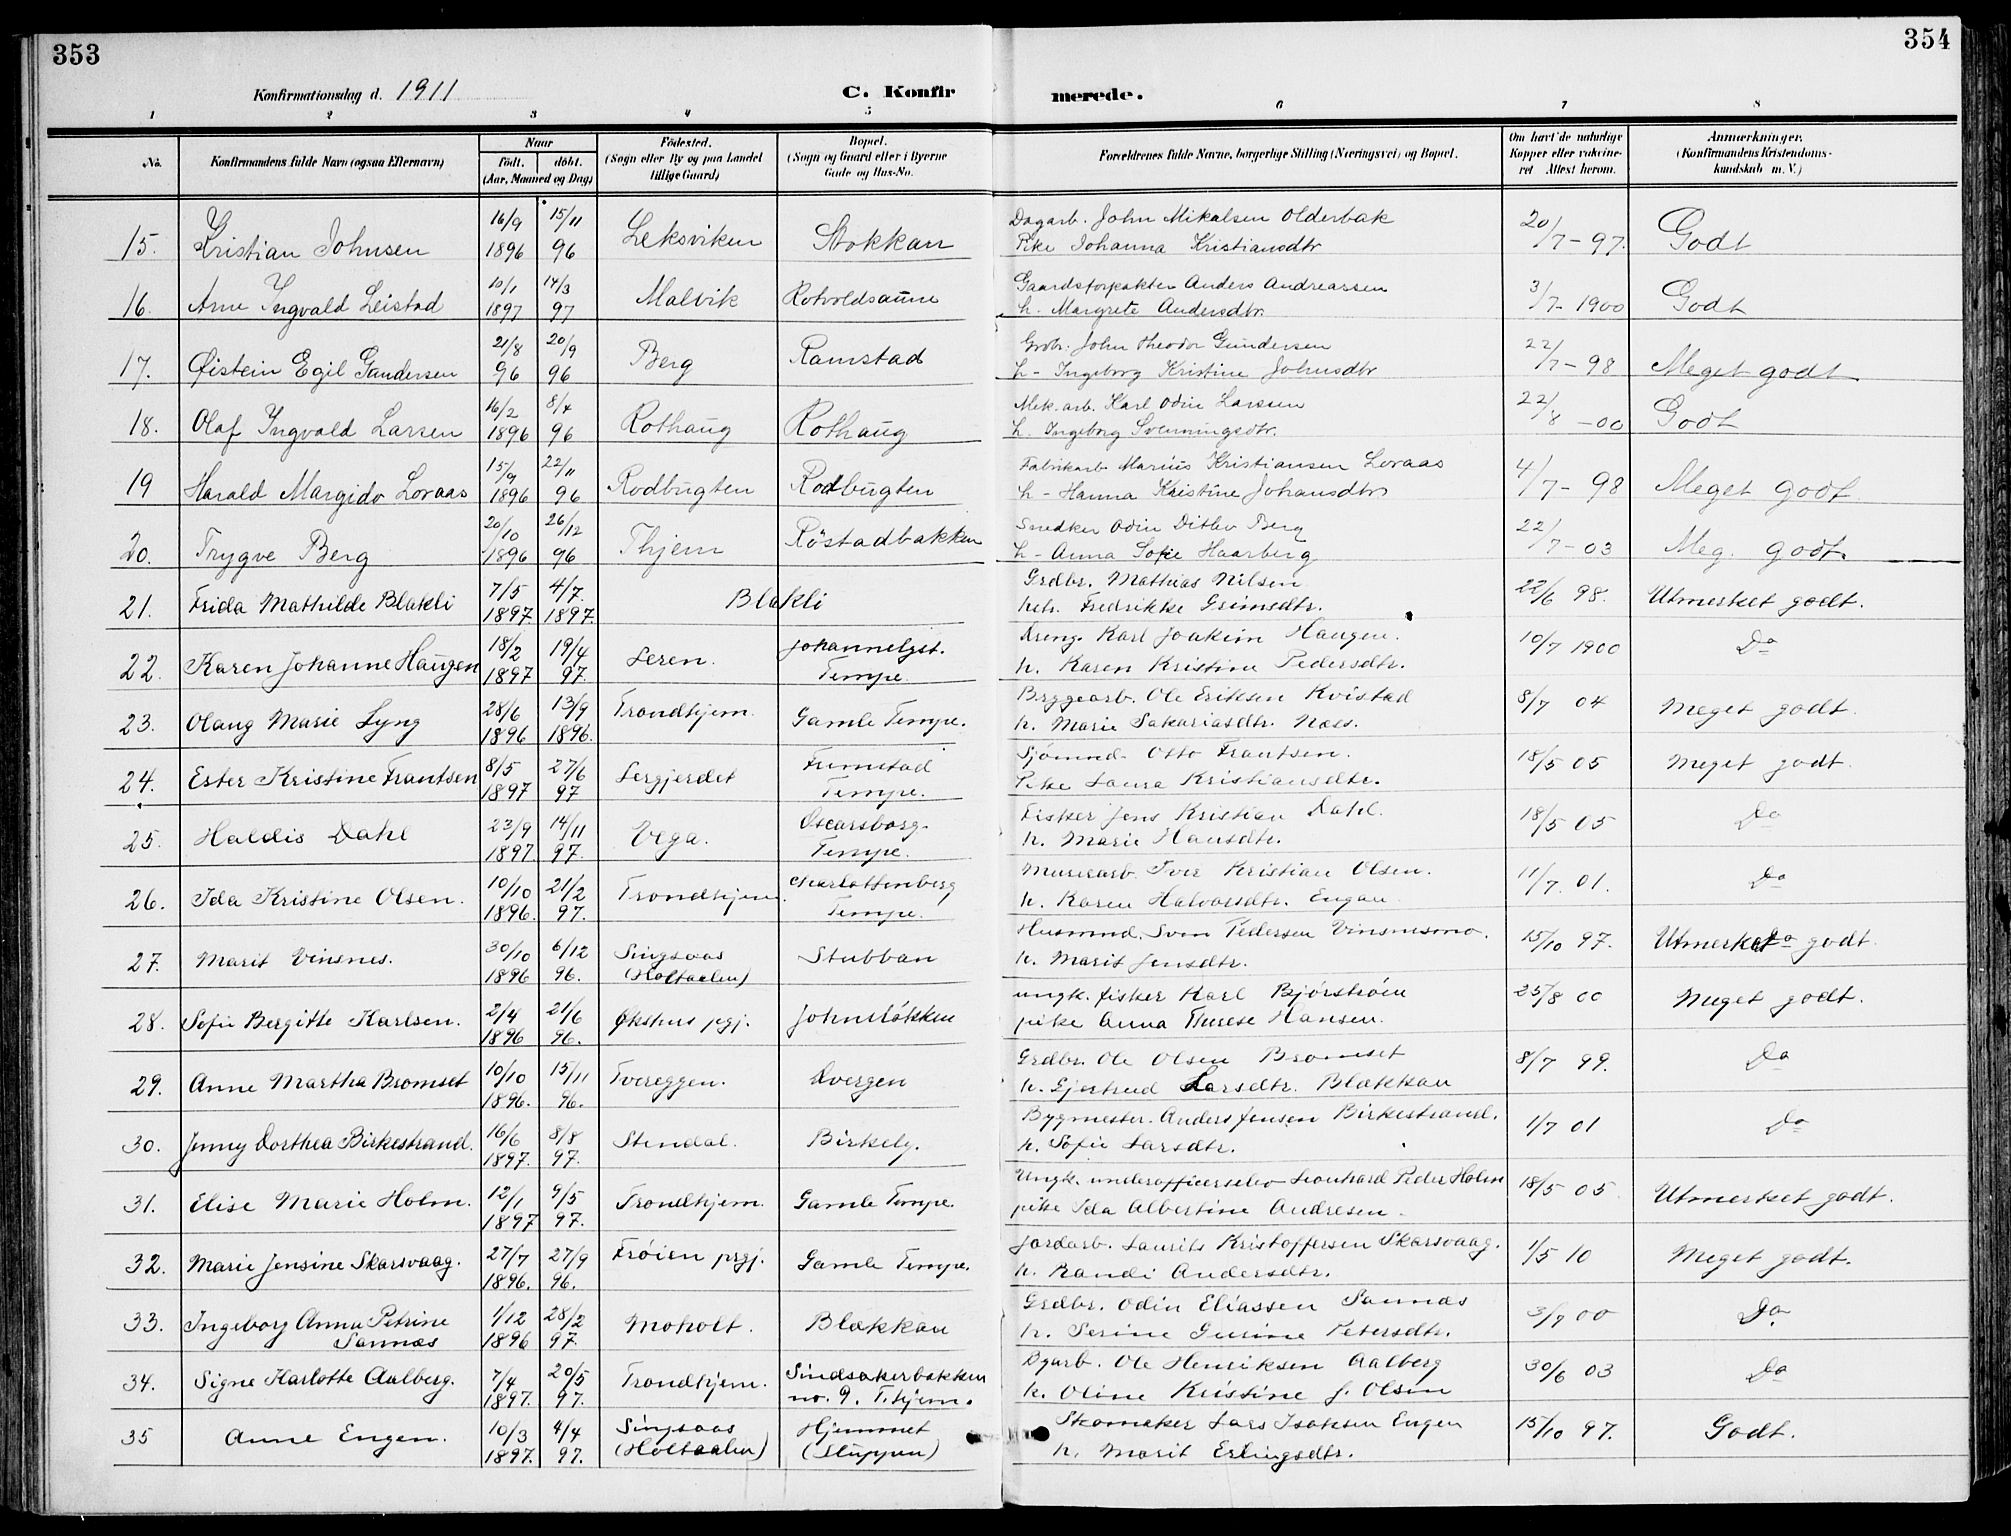 353
354
Konfirmationsdag d. 1911
C. Konfirmerede.
1 2 3 4 5 6 7 8
No. Konfirmandens fulde Navn (ogsaa Efternavn) Naar Födt. döbt. (Aar, Maaned og Dag) Födested. (Sogn eller By og paa Landet tillige Gaard) Bopæl. (Sogn og Gaard eller i Byerne Gade og Hus-No. Forældrenes fulde Navne, borgerlige Stilling (Næringsvei) og Bopæl. Om havt de naturlige Kopper eller vakcineret Attest herom. Anmærkninger. (Konfirmandens Kristendomskundskab m. V.)
16/9 15/11 Dagarb. John Mikalsen Olderbak 20/7-97.
15. Kristian Johnsen 1896 96 Leksviken Stokkan Pike Johanna Kristiansdtr Godt
10/1 14/3 Anders Andreassen 3/7-1900
16. Arne Ingvald Leistad 1897 97 Malvik Rotvoldsaune h. Margrete Andersdtr. Godt
21/8 20/9 John Theodor Gundersen 22/7-98
17. Øistein Egil Gundersen 96 96 Berg Ramstad h- Ingeborg Kristine Johnsdtr Meget godt
16/2 8/4 Mek. arb. Karl Odin Larsen 22/8-00
18. Olaf Ingvald Larsen 1896 96 Rothaug Rothaug h. Ingeborg Svenningsdtr. Godt
15/9 22/11 Fabrikarb. Marius Kristiansen Loraas 4/7-98
19 Harald Margido Loraas 1896 96 Rodbugten Rodbugten h- Hanna Kristine Johansdtr Meget godt
20/10 26/12 Snedker Odin Ditlev Berg 22/7-03
20. Trygve Berg 1896 96 Thjem Röstadbakken h- Anna Sofie Haarberg Meg. godt.
7/5 4/7. Grdbr. Mathias Nilsen 22/6 98.
21. Frida Mathilde Blakli 1897 1897. Blakli Fredrikke Grimsdtr. Utmerket godt.
18/2 19/4 Johannelyst. Dreng. Karl Joakim Haugen. 10/7 1900
22. Karen Johanne Haugen 1897 97. Leren. Tempe. h. Karen Kristine Pedersdtr. Do
28/6 13/9 Trondhjem. Bryggearb. Ole Eriksen Kvistad 8/7 04
23. Olaug Marie Lyng 1896 1896. Gamle Tempe. h. Marie Sakariasdtr. Næs. Meget godt.
8/5 27/6 Sjømnd. Otto Frantsen. 18/5 05
24. Ester Kristine Frantsen 1897 97 Lergjerdet Tempe. Pike Laura Kristiansdtr. Meget godt.
23/9 14/11 Oscarsborg. Fisker Jens Kristian Dahl. 18/5 05
25. Haldis Dahl 1897 97. Vega. Tempe. h. Marie Hansdtr. Do
10/10 21/2 Charlottenberg Murerarb. Iver Kristian Olsen. 11/7. 01.
26. Ida Kristine Olsen. 1896. 97. Trondhjem. Tempe. h. Karen Halvorsdtr. Engan. Do
30/10 6/12 Singsaas Husmnd. Sven Pedersen Vinsnesmo. 15/10 97.
27. Marit Vinsnes. 1896 96. (Holtaalen) Stubban h. Marit Jensdtr. Utmerket godt.
2/4 21/6 ungk. fisker Karl Bjørstrøen 25/8 00
28. Sofie Bergitte Karlsen. 1896 96. Økshus pgj. Johnsløkken pike Anna Therese Hansen. Meget godt.
10/10 15/11 Grdbr. Ole Olsen Bromset 8/7 99.
29. Anne Martha Bromset 1896. 96. Tvereggen. Dvergen h. Gjertrud Larsdtr. Blækkan Do
16/6 8/8 Bygmester. Anders Jensen Birkestrand. 1/7 01
30. Jenny Dorthea Birkestrand. 1897. 97. Stendal. Birkely. h. Sofie Larsdtr. Do
12/1 9/5 Ungk. underofficerselev Leonhard Peder Holm 18/5 05.
31. Elise Marie Holm. 1897 97. Trondhjem. Gamle Tempe. pike Ida Albertine Andresen. Utmerket godt.
27/7 27/9 Frøien prgj. Jordarb. Laurits Kristoffersen Skarsvaag. 1/5 10
32. Marie Jensine Skarsvaag. 1896. 96. Gamle Tempe. h. Randi Andersdtr. Meget godt.
1/12 28/2 Grdbr. Odin Eliassen Sannæs 3/7 00
33. Ingeborg Anna Petrine Sannæs 1896 97. Moholt. Blækkan h. Serine Gurine Petersdtr. Do.
7/4 20/5 Sindsakerbakken Dgarb. Ole Henriksen Aalberg 30/6 03
34. Signe Karlotte Aalberg. 1897. 97. Trondhjem. no. 9. T.hjem. h. Oline Kristine J. Olsen Do
10/3 4/4 Singsaas Hjemmet Skomaker Lars Isaksen Engen 15/10 97.
35 Anne Engen. 1897. 97. (Holtaalen) (Sluppen) h. Marit Erlingsdtr. Godt.